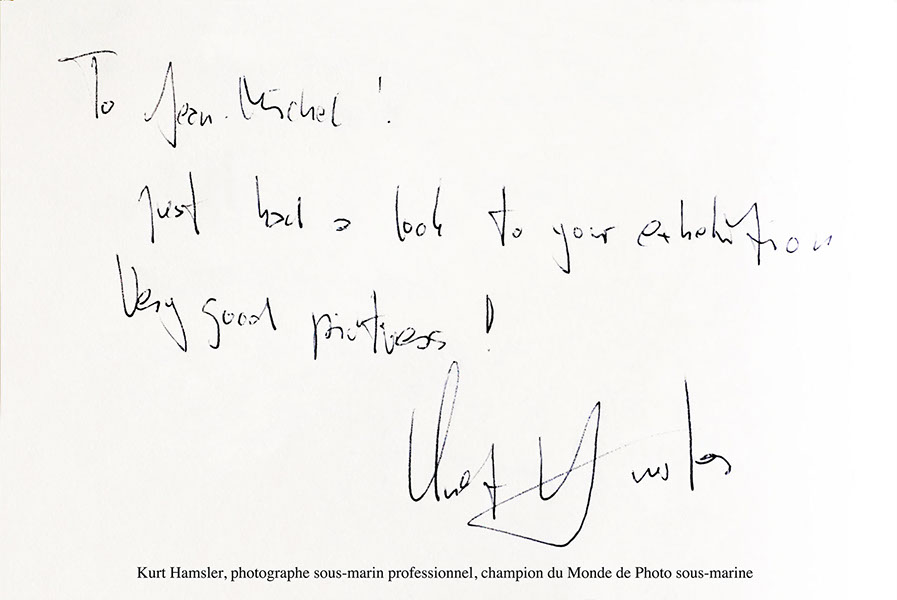 To Jean-Michel !
Just had a look to your exhebition
Very good pictures !
Kurt Hamsler
Kurt Hamsler, photographe sous-marin professionnel, champion du Monde de Photo sous-marine